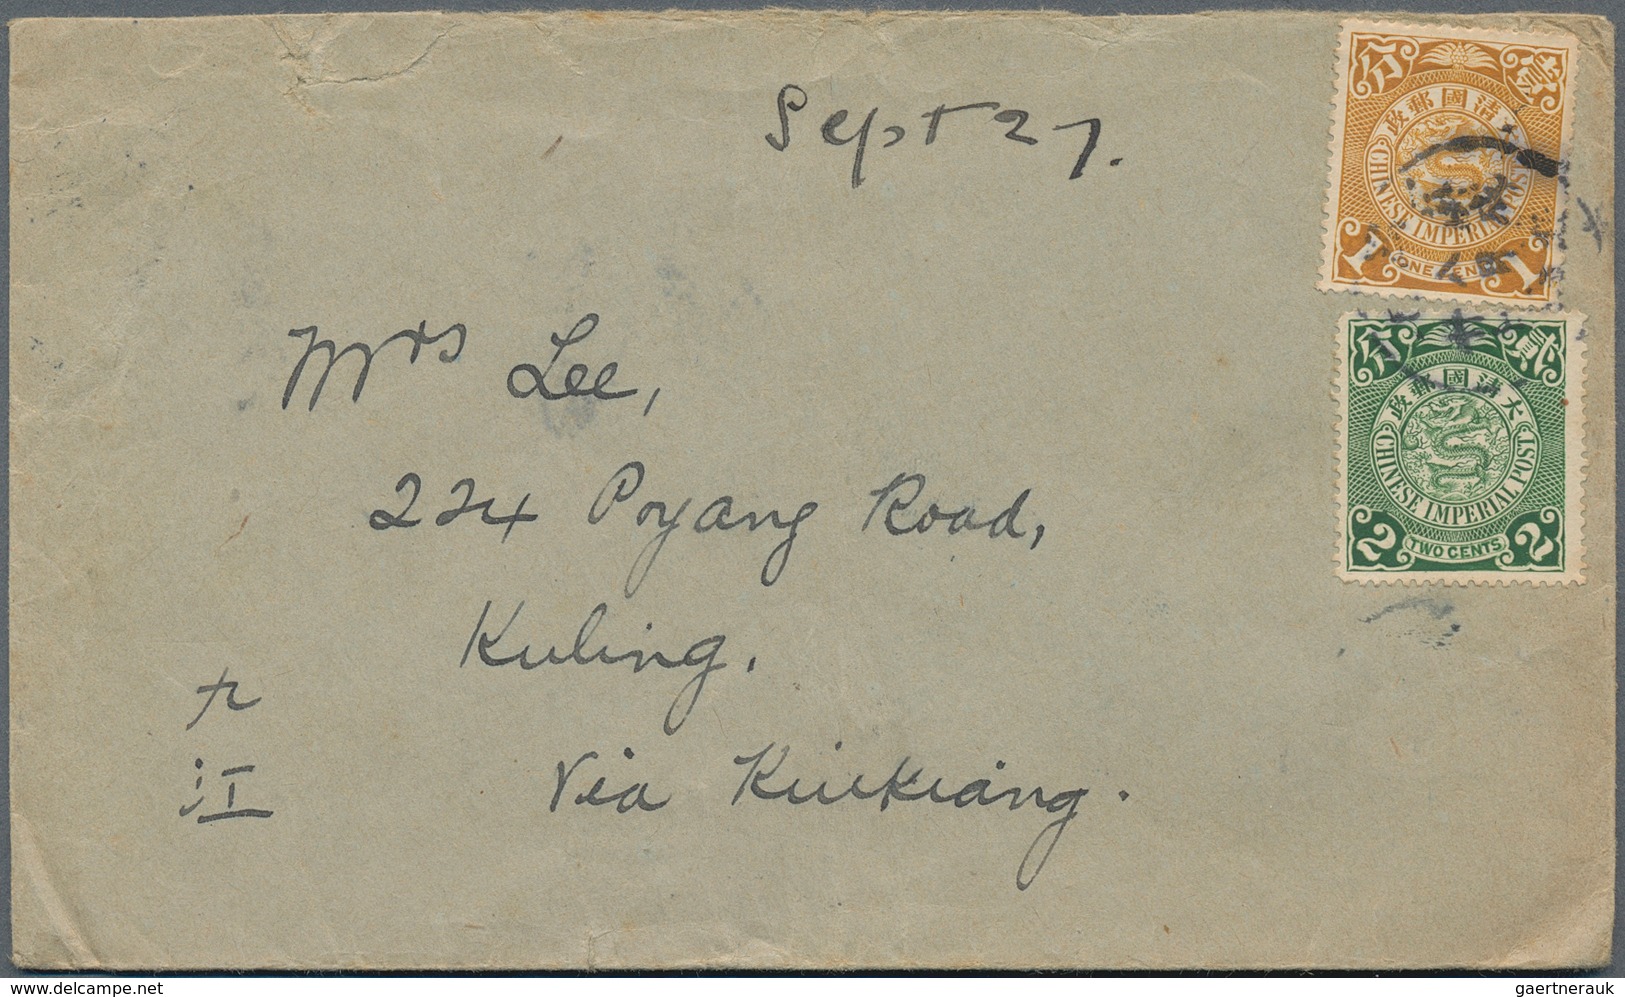 Sept 27.
分 壹
大清國郵政
CHINESE IMPERIAL POST
1 ONE CENT 1
Mrs Lee,
分 貳
大清國郵政
CHINESE IMPERIAL POST
2 TWO CENTS 2
224 Poyang Road,
Kuling.
九
江
Via Kiukiang.
www.delcampe.net
gaertnerauk